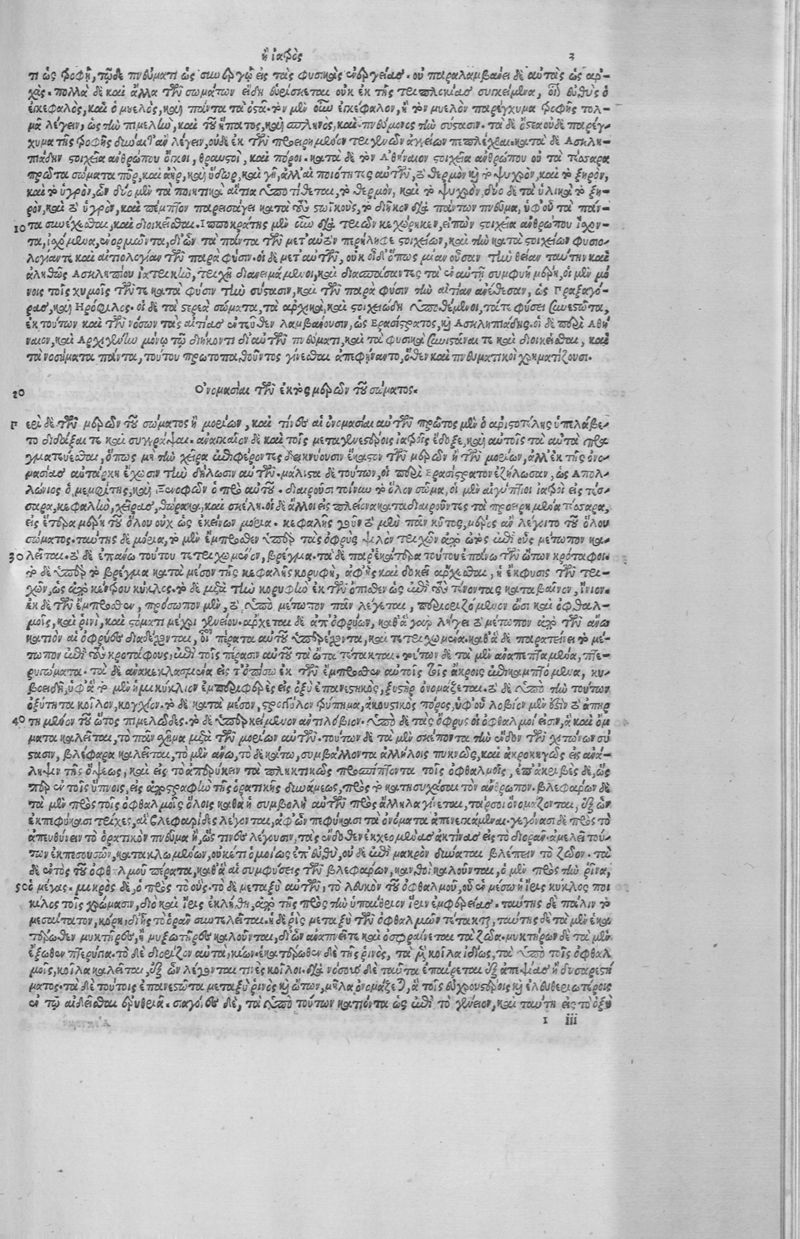 ἢ ἰατρὸς 3
τι ὡς τροφῇ, τῷ δὲ πνεύματι ὡς συνεργῷ εἰς τὰς φυσικὰς ἐνεργείας. οὐ παραλαμβάνει δὲ αὐτὰς ὡς ἀρ-
χάς. πολλὰ δὲ καὶ ἄλλα τῶν σωμάτων εἴδη εὑρίσκεται οὐκ ἐκ τῆς τριπλοκίας συγκείμενα, οἷον εὐθὺς ὁ
ἐγκέφαλος, καὶ ὁ μυελὸς, καὶ πάντα τὰ ὀστᾶ. τὸν μὲν οὖν ἐγκέφαλον, ἢ τὸν μυελὸν παρέγχυμα τροφῆς τολ-
μᾷ λέγειν, ὡς τὴν πιμελὴν, καὶ τοῦ ἥπατος, καὶ σπληνὸς, καὶ πνεύμονος τὴν σύστασιν. τὰ δὲ ὀστᾶ οὐδὲ παρέγ-
χυμα τῆς τροφῆς δύναιτ' ἂν λέγειν, οὐδὲ ἐκ τῶν προειρημένων τριῶν ἀγγείων πεπλέχθαι. κατὰ δὲ Ἀσκλη-
πιάδην στοιχεῖα ἀνθρώπου ὄγκοι, θραυστοὶ, καὶ πόροι. κατὰ δὲ τὸν Ἀθήναιον στοιχεῖα ἀνθρώπου οὐ τὰ τέσσαρα
πρῶτα σώματα πῦρ, καὶ ἀὴρ, καὶ ὕδωρ, καὶ γῆ, ἀλλ' αἱ ποιότητες αὐτῶν, τὸ θερμὸν καὶ τὸ ψυχρὸν, καὶ τὸ ξηρὸν,
καὶ τὸ ὑγρὸν, ὧν δύο μὲν τὰ ποιητικὰ αἴτια ὑποτίθεται, τὸ θερμὸν, καὶ τὸ ψυχρὸν, δύο δὲ τὰ ὑλικὰ τὸ ξη-
ρὸν, καὶ τὸ ὑγρὸν, καὶ πέμπτον παρεισάγει κατὰ τοὺς στωϊκοὺς, τὸ διῆκον διὰ πάντων πνεῦμα, ὑφ' οὗ τὰ πάν-
10 τα συνέχεσθαι, καὶ διοικεῖσθαι. Ἱπποκράτης μὲν οὖν διὰ τριῶν κεχώρηκεν, εἰπὼν στοιχεῖα ἀνθρώπου ἴσχον-
τα, ἰσχόμενα, ἐνορμῶντα, δι' ὧν τὰ πάντα τῶν μετ' αὐτὸν περιείληφε στοιχείων, καὶ τὴν κατὰ στοιχεῖον φυσιο-
λογίαν τε καὶ αἰτιολογίαν τῶν παρὰ φύσιν. οἱ δὲ μετ' αὐτὸν, οὐκ οἶδ' ὅπως μίαν οὖσαν τὴν θείαν ταύτην καὶ
ἀληθῶς Ἀσκληπιείου ἰατρικὴν, τριχῆ διανειμάμενοι, καὶ διασπάσαντες τὰ ἐν αὐτῇ συμφυῆ μέρη, οἱ μὲν μό
νοις τοῖς χυμοῖς τῶν τε κατὰ φύσιν τὴν σύστασιν, καὶ τῶν παρὰ φύσιν τὴν αἰτίαν ἀνέθεσαν, ὡς Πραξαγό-
ρας, καὶ Ἡρόφιλος. οἱ δὲ τὰ στερεὰ σώματα, τὰ ἀρχικὰ, καὶ στοιχειώδη ὑποθέμενοι, τά τε φύσει συνεστῶτα,
ἐκ τούτων καὶ τῶν νόσων τὰς αἰτίας ἐντεῦθεν λαμβάνουσιν, ὡς Ἐρασίστρατος, καὶ Ἀσκληπιάδης. οἱ δὲ περὶ Ἀθή
ναιον, καὶ Ἀρχιγένην μόνῳ τῷ διήκοντι δι' αὐτῶν πνεύματι, καὶ τὰ φυσικὰ συνιστάναι τε καὶ διοικεῖσθαι, καὶ
τὰ νοσήματα πάντα, τούτου πρωτοπαθοῦντος γίνεσθαι ἀπεφήναντο, ὅθεν καὶ πνευματικοὶ χρηματίζουσι.
20 Ὀνομασίαι τῶν ἐκτὸς μερῶν τοῦ σώματος.
Περὶ δὲ τῶν μερῶν τοῦ σώματος ἢ μορίων, καὶ τίνες αἱ ὀνομασίαι αὐτῶν πρῶτος μὲν ὁ ἀριστοτέλης ὑπελάβε-
το διδάξαι τε καὶ συγγράψαι. ἀναγκαῖον δὲ καὶ τοῖς μεταγενεστέροις ἰατροῖς ἔδοξε, καὶ αὐτοῖς τὰ αὐτὰ πρα-
γματεύεσθαι, ὅπως μὴ τὴν χεῖρα ἐπιφέροντες δεικνύουσιν ἕκαστον τῶν μερῶν ἢ τῶν μορίων, ἀλλ' ἐκ τῆς ὀνο-
μασίας αὐτάρκη ἔχωσιν τὴν δήλωσιν αὐτῶν. μάλιστα δὲ τούτων, οἱ περὶ Ἐρασίστρατον ἐζήλωσαν, ὡς Ἀπολ-
λώνιος ὁ μεμφίτης, καὶ Ξενοφῶν ὁ πρὸ αὐτοῦ. διαιροῦσι τοίνυν τὸ ὅλον σῶμα, οἱ μὲν αἰγύπτιοι ἰατροὶ εἰς τέσ-
σαρα, κεφαλὴν, χεῖρας, θώρακα, καὶ σκέλη. οἱ δὲ ἄλλοι εἰς πλείονα καταδιαιροῦντες τὰ προειρημένα τέσσαρα,
εἰς ἕτερα μέρη τοῦ ὅλου οὐχ ὡς ἐκείνων μόρια. κεφαλῆς γοῦν τὸ μὲν πᾶν κῦτος, μέρος ἂν λέγοιτο τοῦ ὅλου
σώματος. ταύτης δὲ μόρια, τὸ μὲν ἔμπροσθεν ὑπὲρ τὰς ὀφρῦς ψιλὸν τριχῶν ἀπὸ ὠτὸς ἐπὶ οὖς μέτωπον κα-
30 λεῖται. τὸ δὲ ἐπάνω τούτου τετριχωμένον, βρέγμα. τὰ δὲ παρ' ἑκάτερα τούτου ἐπάνω τῶν ὤτων κρόταφοι.
τὸ δὲ ὑπὲρ τὸ βρέγμα κατὰ μέσον τῆς κεφαλῆς κορυφὴ, ἀφ' ἧς καὶ δοκεῖ ἄρχεσθαι, ἡ ἔκφυσις τῶν τρι-
χῶν, ὡς ἀπὸ κέντρου κύκλος. τὸ δὲ μετὰ τὴν κορυφὴν ἐκ τῶν ὄπισθεν ὡς ἐπὶ τοὺς τένοντας καταβαῖνον, ἰνίον.
ἐκ δὲ τῶν ἔμπροσθεν, πρόσωπον μὲν, τὸ ὑπὸ μέτωπον πᾶν λέγεται, περιοριζόμενον ὠσὶ καὶ ὀφθαλ-
μοῖς, καὶ ῥινὶ, καὶ στόματι μέχρι γενείου. ἄρχεται δὲ ἀπ' ὀφρύων, καθ' ἃ γὰρ λήγει τὸ μέτωπον ἀπὸ τῶν ἄνω
κάτιον αἱ ὀφρύες διαδέχονται, οἷον πέρατα αὐτοῦ ὑπερέχοντα, καὶ τετριχωμένα. καθ' ἃ δὲ παρατείνει τὸ μέ-
τωπον ἐπὶ τοὺς κροτάφους, ἐπὶ τοῖς πέρασιν αὐτοῦ τὰ ὦτα τέτακται. τούτων δὲ τὰ μὲν ἀναπεπταμένα, πτε-
ρυγώματα. τὰ δὲ ἀνακεκλασμένα εἰς τοὐπίσω ἐκ τῶν ἔμπροσθεν αὐτοῖς τοῖς ἄκροις ἐπικαμπτόμενα, κυ-
βοειδῆ, ὑφ' ἃ τὸ μὲν ἡμικύκλιον ἐμπεριφερὲς εἰς ὀξὺ ἐπανεστηκὸς, ξυστὴρ ὀνομάζεται. τὸ δὲ ὑπὸ τὴν τούτων
ὀξύτητα κοῖλον, κόγχον. τὸ δὲ κατὰ μέσον, στρογγύλον τρύπημα, ἀκουστικὸς πόρος, ὑφ' οὗ λοβίον μὲν ἐστιν τὸ ἀπηρ
40 τημένον τοῦ ὠτὸς πιμελῶδες. τὸ δὲ ὑπερκείμενον ἀντιλόβιον. ὑπὸ δὲ τὰς ὀφρῦς οἱ ὀφθαλμοί εἰσιν, ἃ καὶ ὄμ
ματα καλεῖται, τὸ πᾶν σχῆμα μετὰ τῶν μορίων αὐτῶν. τούτων δὲ τὰ μὲν σκέποντα τὴν ἐκ τῶν χιτώνων σύ
στασιν, βλέφαρα καλεῖται, τὸ μὲν ἄνω, τὸ δὲ κάτω, συμβάλλοντα ἀλλήλοις πυκνῶς, καὶ ἀκροκιχῶς εἰς ἀνά-
ληψιν τῆς ὄψεως, καὶ εἰς τὸ ἀπερύκειν τὰ πληκτικῶς προσπίπτοντα τοῖς ὀφθαλμοῖς, ἐπ' ἀκριβὲς δὲ, ὥσ
περ ἐν τοῖς ὕπνοις, εἰς ἀργίαν τῆς ὁρατικῆς δυνάμεως, πρὸς τὸ καθησυχάσαι τὸν ἄνθρωπον. βλεφάρων δὲ
τὰ μὲν πρὸς τοῖς ὀφθαλμοῖς ὅλοις καθ' ἃ ἡ συμβολὴ αὐτῶν πρὸς ἄλληλα γίνεται, ταρσοὶ ὀνομάζονται, ἐξ ὧν
ἐκπεφύκασι τρίχες, αἳ βλεφαρίδες λέγονται, ἀφ' ὧν πεφύκασι τὰ ὀνόματα ἀπενεγκάμεναι. γεγόνασι δὲ πρὸς τὸ
ἀπευθύνειν τὸ ὁρατικὸν πνεῦμα ἢ, ὥς τινες λέγουσιν, τὰς ἔνδοθεν ἐκχεομένας ἀκτῖνας εἰς τὸ διορᾶν. ἀμέλει τού-
των ἐκπεσουσῶν, κατακλωμένων, οὐκέτι ὁμοίως ἐπ' εὐθὺ, οὐδὲ ἐπὶ μακρὸν δύναται βλέπειν τὸ ζῶον. τὰ
δὲ ἐντὸς τοῦ ὀφθαλμοῦ πέρατα, καθ' ἃ αἱ συμφύσεις τῶν βλεφάρων, κανθοὶ καλοῦνται, ὁ μὲν πρὸς τὴν ῥῖνα,
50 μέγας. μικρὸς δὲ, ὁ πρὸς τὸ οὖς. τὸ δὲ μεταξὺ αὐτῶν, τὸ λευκὸν τοῦ ὀφθαλμοῦ, οὗ ἐν μέσῳ ἡ ἶρις κύκλος ποι
κίλος τοῖς χρώμασιν, διὸ καὶ ἶρις ἐκλήθη, ἀπὸ τῆς πρὸς τὴν ὑπαίθριον ἶριν ἐμφερείας. ταύτης δὲ πάλιν τὸ
μεσαίτατον, κόρη, δι' ἧς τὸ ὁρᾶν συντελεῖται. ἡ δὲ ῥὶς μεταξὺ τῶν ὀφθαλμῶν τέτακται, ταύτης δὲ τὰ μὲν ἑκα
τέρωθεν μυκτῆρες, ἢ μυξωτῆρες καλοῦνται, δι' ὧν ἀναπνεῖ τε καὶ ὀσφραίνεται τὰ ζῶα. μυκτήρων δὲ τὰ μὲν
ἔξωθεν πτερύγια. τὸ δὲ διορίζον αὐτὰ, κίων. ἑκατέρωθεν δὲ τῆς ῥινὸς, τὰ μὲν κοῖλα ἰδίως, τὰ ὑπὸ τοῖς ὀφθαλ
μοῖς, κοῖλα καλεῖται, ἐξ ὧν λέγονται τινὲς κοῖλοι. διὰ νόσους δὲ ταῦτα ἐπαίρεται ἐξ ἀπεψίας ἢ δυσαρεστή
ματος. τὰ δὲ τούτοις ἐπανεστῶτα μεταξὺ ῥινὸς καὶ ὤτων, μῆλα ὀνομάζεται, ἃ τοῖς εὐχρουστέροις καὶ ἐλευθεριωτέροις
ἐν τῷ αἰδεῖσθαι ἐρυθριᾷ. σιαγόνες δὲ, τὰ ὑπὸ τούτων κατιόντα ὡς ἐπὶ τὸ γένειον, καὶ ταύτῃ εἰς τὸ ὀξὺ
1 iii